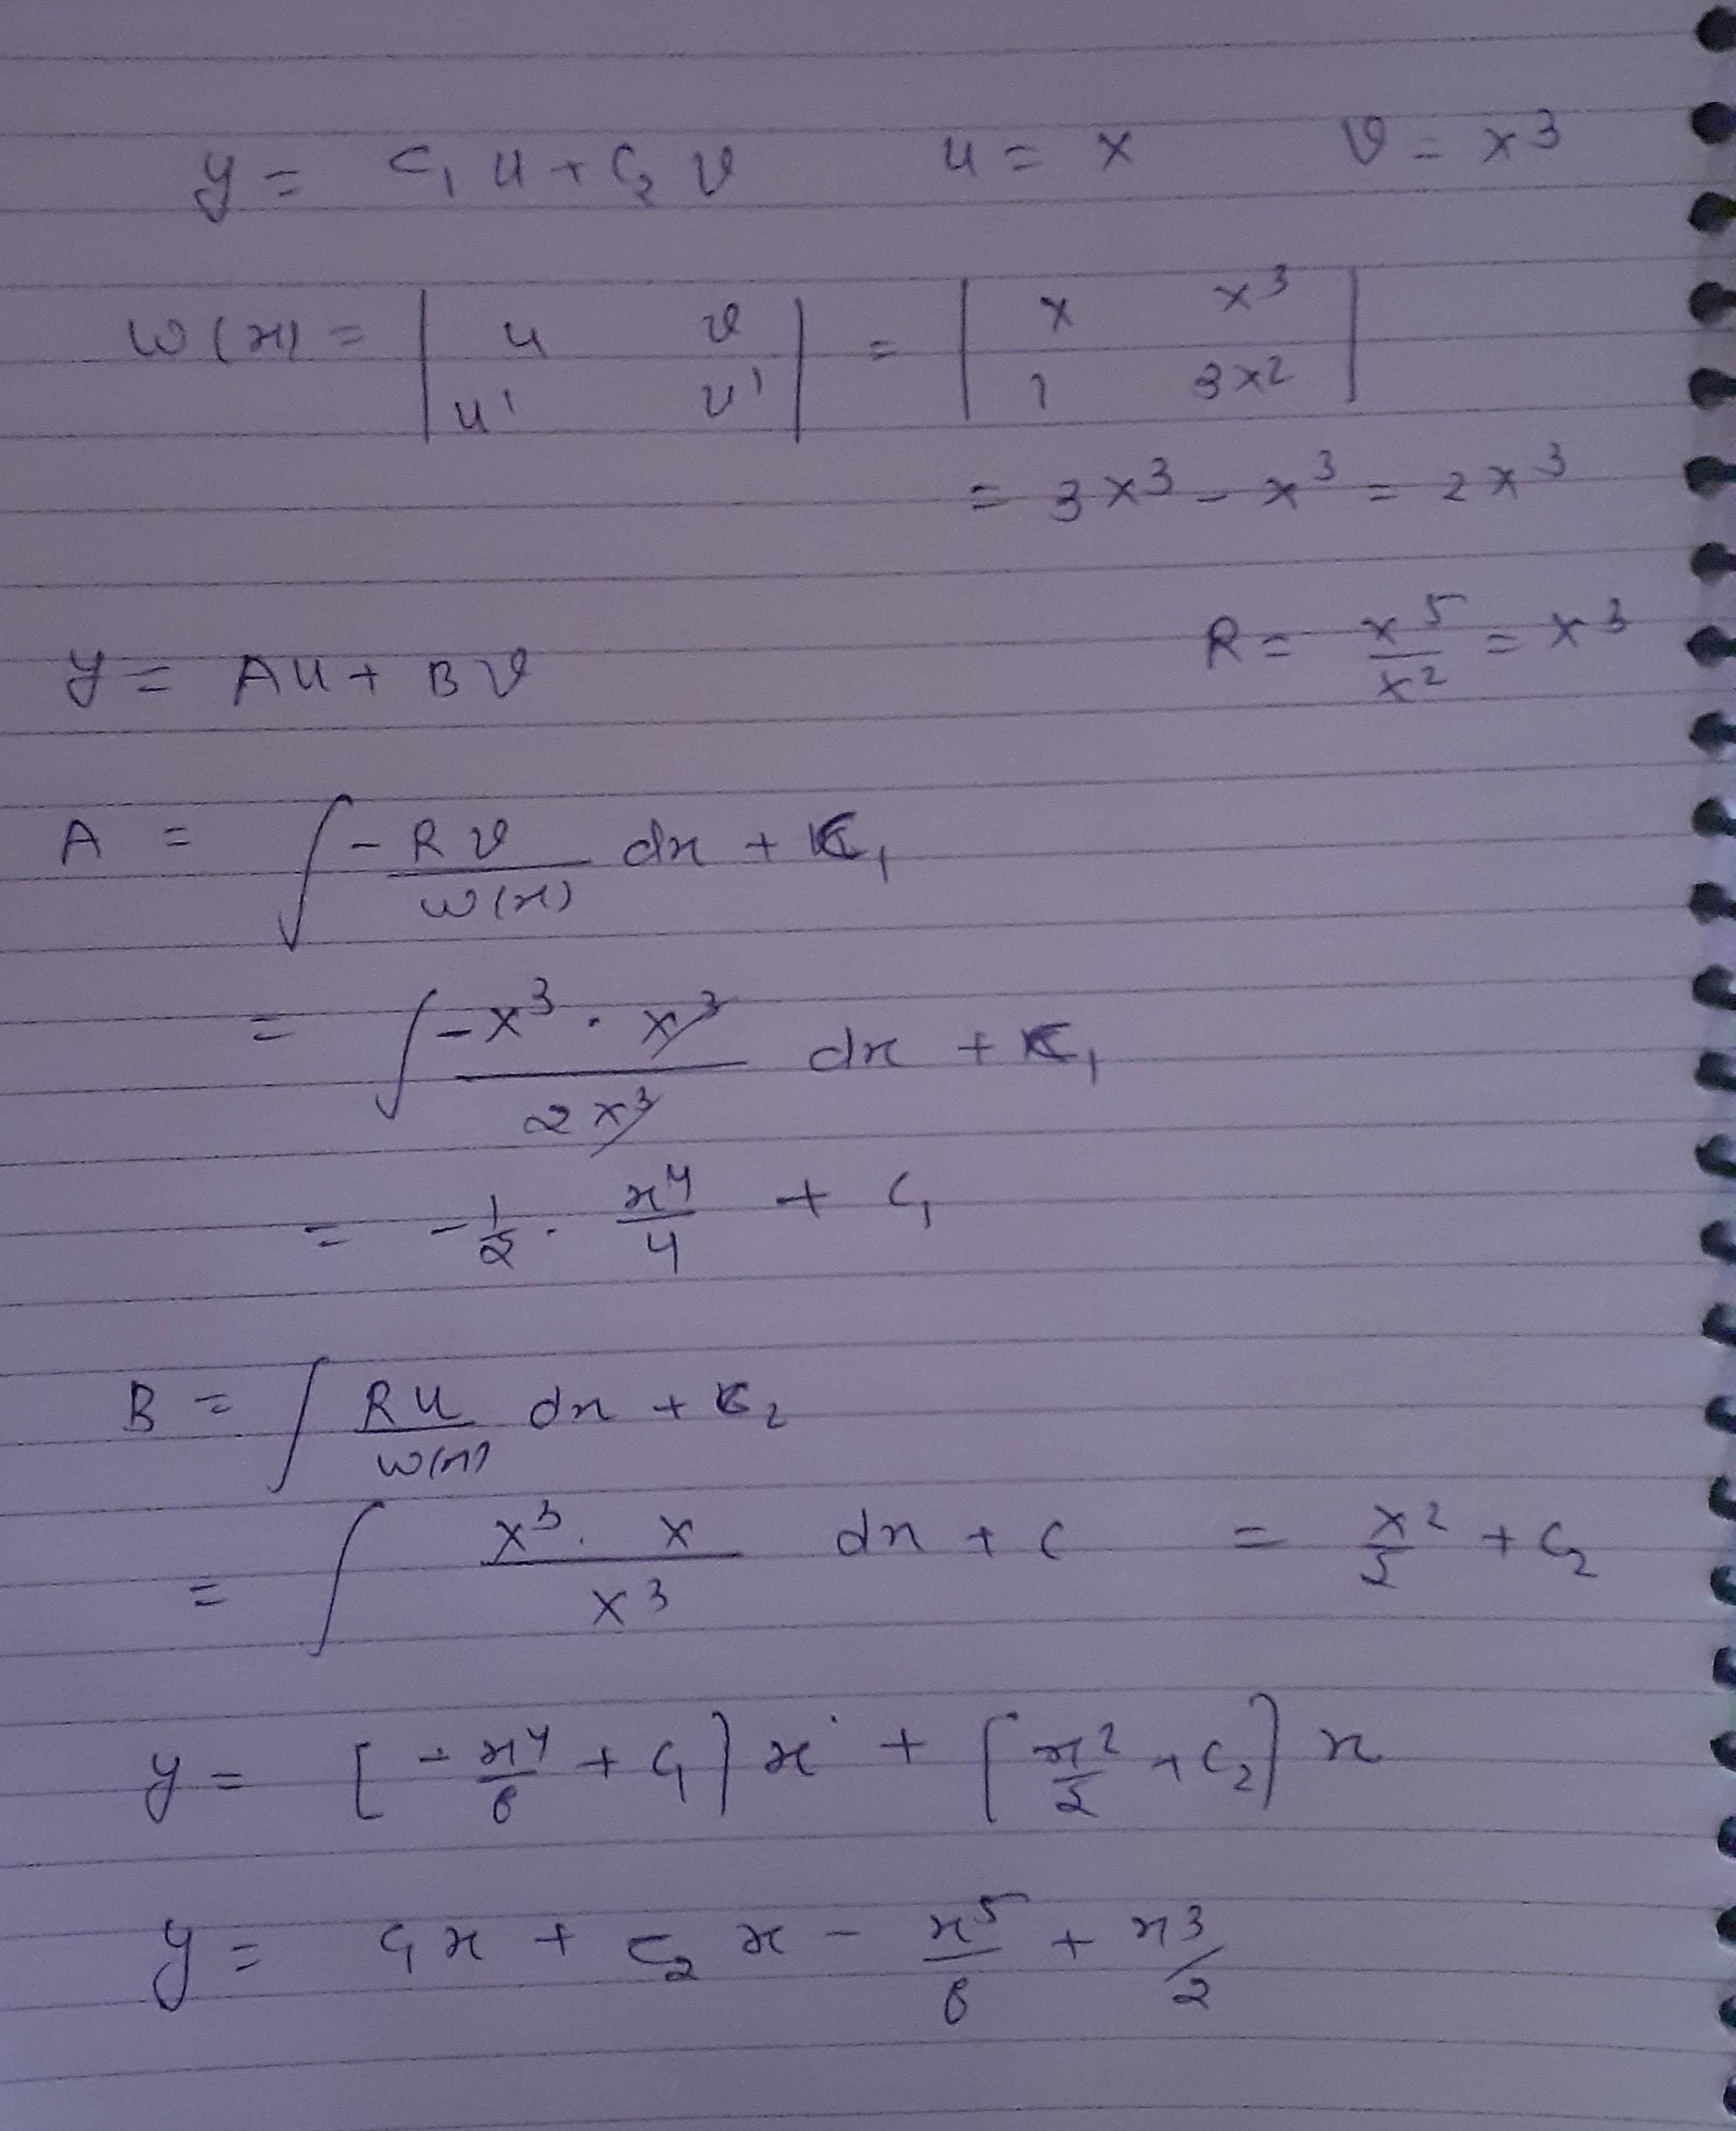 y = C₁ u + C₂ v    u = x    v = x³
W(x) = | u v | = | x x³ |
| u' v' | | 1 3x² |
= 3x³ - x³ = 2x³
y = Au + Bv    R = x⁵/x² = x³
A = ∫ -Rv/W(x) dx + C₁
= ∫ -x³ · x³/2x³ dx + C₁
= -1/2 · x⁴/4 + C₁
B = ∫ Ru/W(x) dx + C₂
= ∫ x³ · x/x³ dx + C = x²/2 + C₂
y = [-x⁴/8 + C₁] x + [x²/2 + C₂] x
y = C₁x + C₂ x - x⁵/8 + x³/2